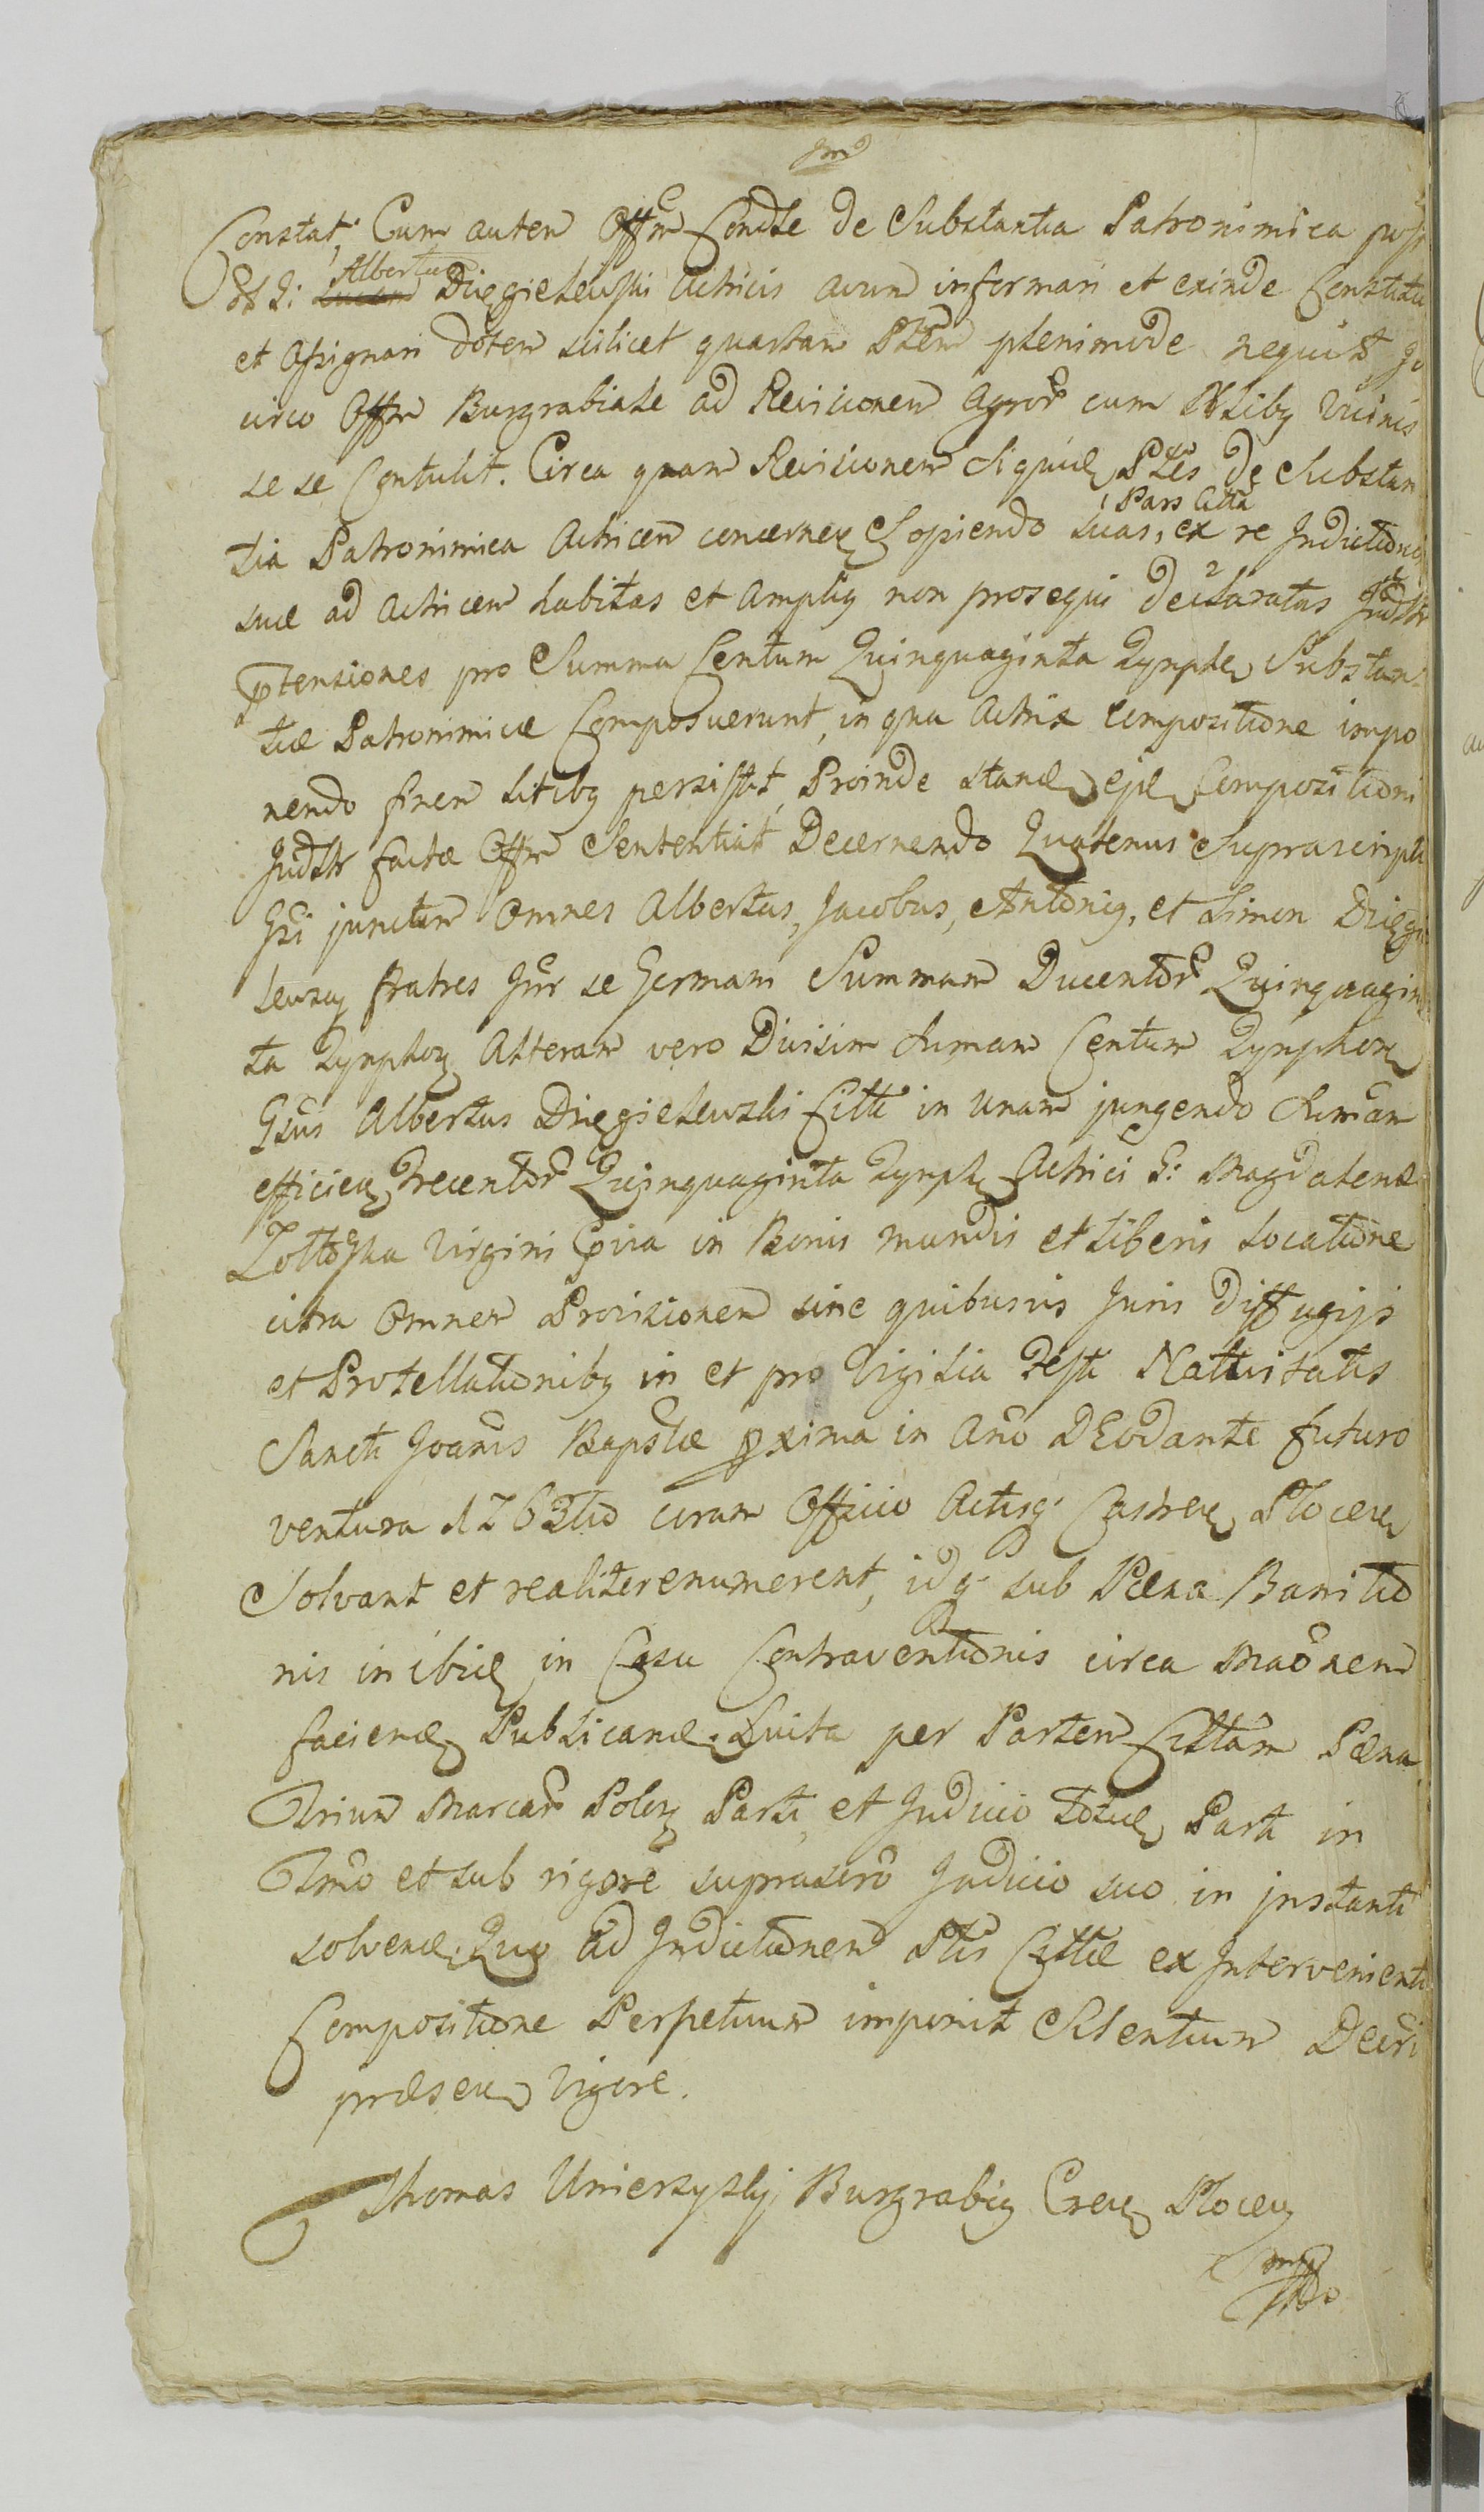 Constat; Cum autem Offm Condle de Substantia Patronimica post
Albertum
Dzięgielewski Actricis avum informari et exinde Constitui
et Assignari dotem scilicet quartam Ptem plenimode nequit
circo Offm Burgrabiale ad Revisionem Agror cum Nbliby Vicinis
se se Contulit. Circa quam Revisionem Siquid Ptes de Substan
Pars Citta
tia Patronimica Actricem concernen Sopiendo suas, ex re Indictionis
suæ ad Actricem habitas et Ampliy non prosequi declaratas Judtr
Ptensiones pro Summa Centum Quinquaginta Tynphr Substan
tiæ Patronimicæ Composuerunt, in qua Actrix Compositione impo
nendo finem litiby persistit, Proinde stand ejd Compositioni
Judtr factæ Offm Sententiat Decernendo Quatenus Suprascripti
Gsi junctim Omnes Albertus, Jacobus, Antoniy, et Simon Dzięgi
lewscy fratres Gnr se Germani Summam Ducentor Quinquagin
ta Tynphor Alteram vero Divisim Sumam Centum Tynphor
Gsus Albertus Dzięgielewski Citti in unam jungendo Sumam
efficien Trecentor Quinquaginta Tynph Actrici G: Magdalenæ
Zottoska Virgini in Bonis mundis et liberis locatione
citra Omnem Provisionem sine quibusvis Juris diffugijs
et Protellationiby in et pro Vigilia Festi Nattivitatis
Sancti Joanis Bapstæ pxima in Ano DEodante futuro
ventura 1763tio coram Officio Actisq Castren Plocen
Solvant et realiter enumerent, idq sub Pæna Banitio
nis in ibid in Casu Contraventionis circa Maonem
faciend Publicand. Luita per Partem Cittam Pæna
Trium Marcar Polor Parti et Judicio totid Parti in
Tmo et sub rigore suprascro Judicio suo in instanti
solvend. Quo ad Indictionem Ptis Cittæ ex Intervenienti
Compositione Perpetuum imponit Silentium Decri
præsen Vigore.
Thomas Unierzyski Burgrabiy Cren Plocen
mp